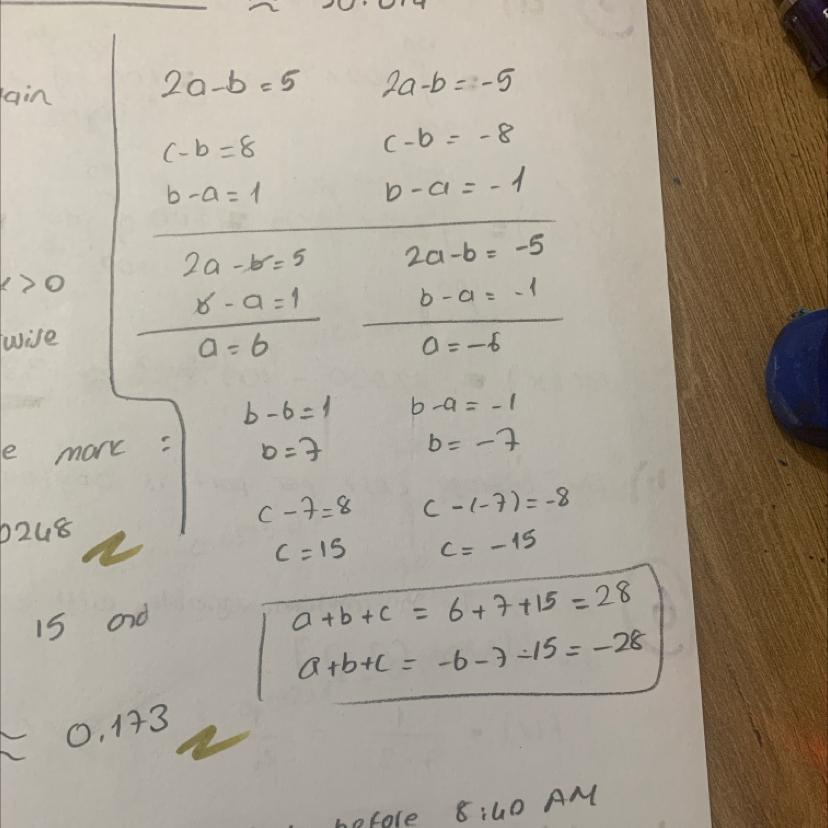 ≈ 50.014
ain
2a-b = 5 2a-b = -5
c-b = 8 c-b = -8
b-a = 1 b-a = -1
2a-b = 5 2a-b = -5
x > 0
b-a = 1 b-a = -1
wise
a = 6 a = -6
b-6 = 1 b-a = -1
e more : b = 7 b = -7
c-7 = 8 c-(-7) = -8
0248
c = 15 c = -15
15 and
a+b+c = 6+7+15 = 28
a+b+c = -6-7-15 = -28
≈ 0.173
before 8:40 AM